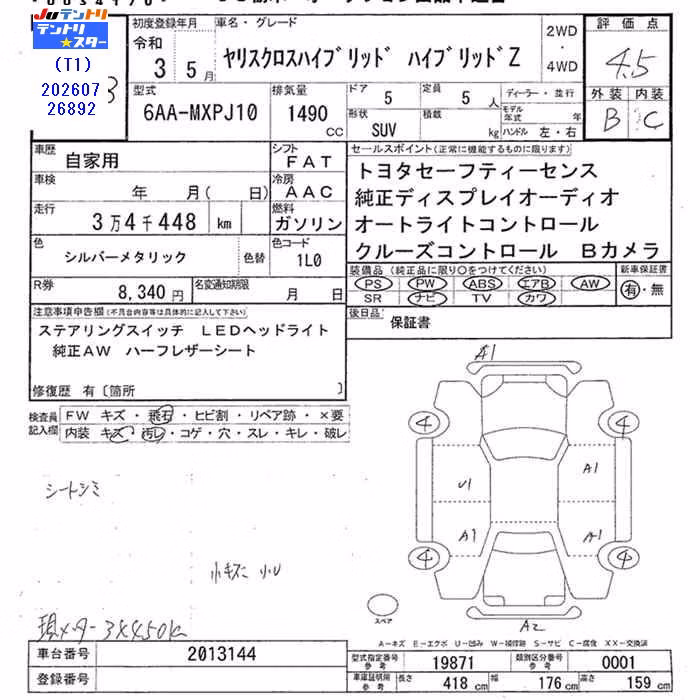 JUテントリ
テントリ★スター
(T1)
202607
26892
初度登録年月
令和
3 5月
車名・グレード
ヤリスクロスハイブリッド ハイブリッドZ
2WD
・
4WD
評価点
4.5
外装 内装
B C
型式
6AA-MXPJ10
排気量
1490
CC
ドア
5
定員
5 人
形状
SUV
積載
kg
ディーラー・並行
モデル年式 年
ハンドル 左・右
車歴
自家用
シフト
FAT
車検
年 月( 日)
冷房
AAC
走行
3万4千448 km
燃料
ガソリン
色
シルバーメタリック
色替
色コード
1L0
R券
8,340円
名変通知期限
月 日
セールスポイント(正常に機能するものに限ります)
トヨタセーフティーセンス
純正ディスプレイオーディオ
オートライトコントロール
クルーズコントロール Bカメラ
装備品(純正品に限り○をつけてください)
PS PW ABS エアB AW
SR ナビ TV カワ
新車保証書
有・無
後日品
保証書
注意事項申告欄(不具合内容等は具体的に記入して下さい)
ステアリングスイッチ LEDヘッドライト
純正AW ハーフレザーシート
修復歴 有〔箇所 〕
検査員記入欄
FW キズ・飛石・ヒビ割・リペア跡・×要
内装 キズ・汚レ・コゲ・穴・スレ・キレ・破レ
シートシミ
小キズ 小U
現メーター 34450k
A1
4 4
U1 A1
A1 A1
4 4
スペア
A2
A-キズ E-エクボ U-凹み W-補修跡 S-サビ C-腐食 XX-交換済
車台番号
2013144
登録番号
型式指定番号 参考
19871
類別区分番号 参考
0001
車庫証明用 参考
長さ 418 cm 幅 176 cm 高さ 159 cm